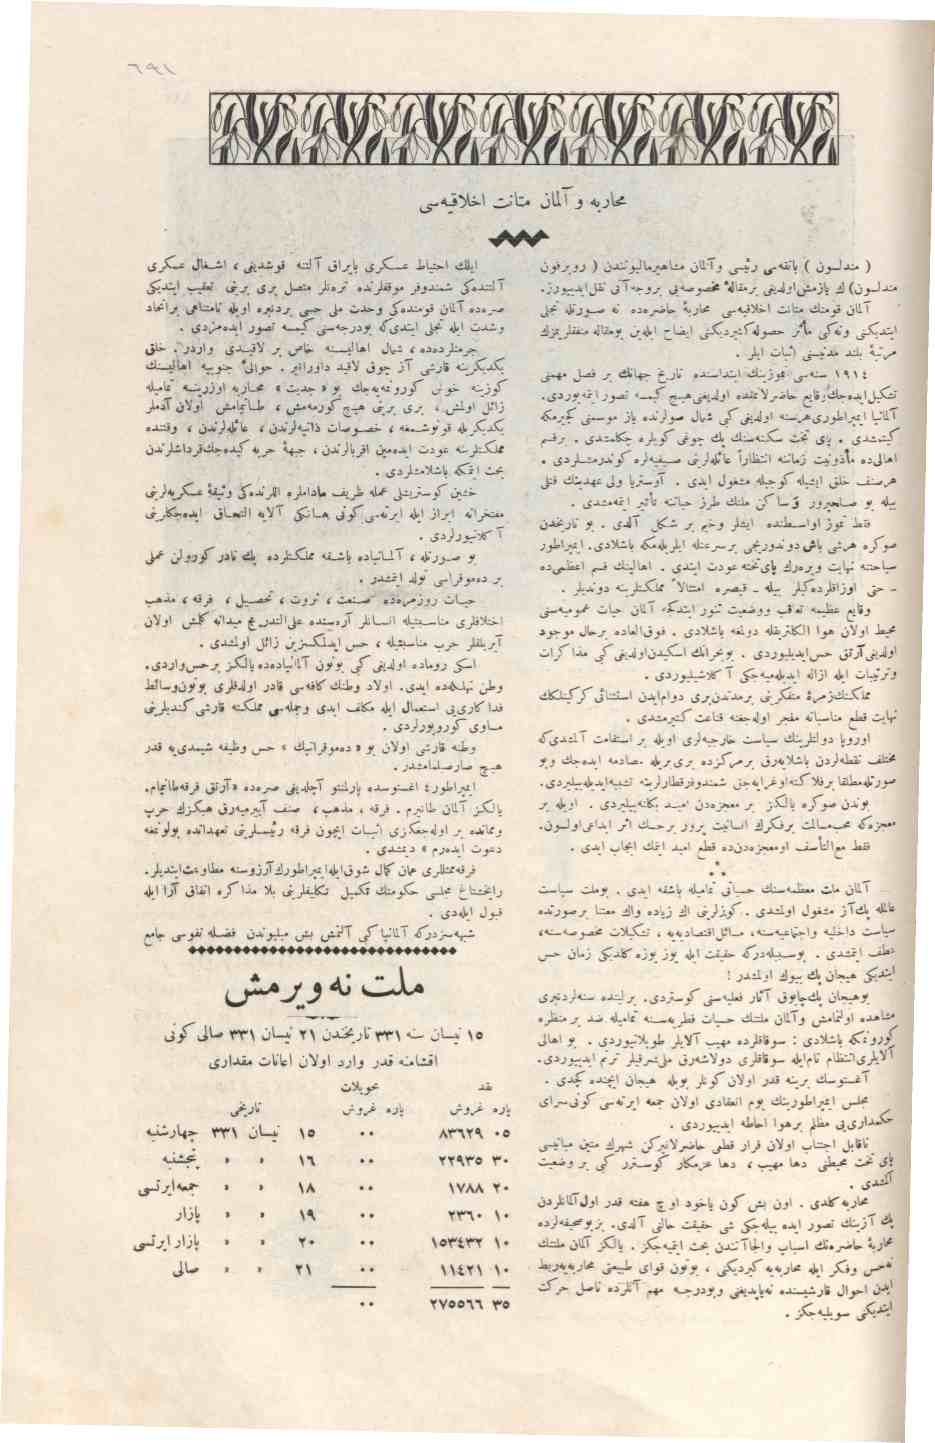 ٦٩١
محاربه و آلمان متانت اخلاقیه‌سی
( مندلسون ) بانقه‌سی رئیسی و آلمان مشاهیرمالیونندن ( روبرفون
مندلسون) ك یازمش‌اولدیغی برمقالهٔ مخصوصه‌یی بروجه‌آتی نقل‌ایدییورز.
آلمان قومنك متانت اخلاقیه‌سی محاربهٔ حاضره‌ده نه صورتله تجلی
ایتدیكنی ونه‌كی مأثر حصوله‌كتیردیكنی ایضاح ایله‌ین بومقاله متفقلریمزك
مرتبهٔ بلند مدنیتنی اثبات ایلر .
١٩١٤ سنه‌سی تموزینك ابتداسنده تاریخ جهانك بر فصل مهمنی
تشكیل‌ایده‌جك‌وقایع حاضرلانمقده اولدیغنی‌هیچ كیمسه تصور ایتمه‌یوردی.
آلمانیا ایمپراطوری‌هرسنه اولدیغی كبی شمال صولرنده یاز موسمنی كچیرمكه
كیتمشدی . پای تخت سكنه‌سنك پك چوغی كویلره چكلمشدی . برقسم
اهالی‌ده مأذونیت زماننه انتظاراً عائله‌لرینی صیفیه‌لره كوندرمشلردی .
هرصنف خلق ایشیله كوجیله مشغول ایدی . آوستریا ولی عهدینك قتلی
بیله بو صلحپرور و ساكن ملتك طرز حیاتنه تأثیر ایتمه‌مشدی .
فقط تموز اواسطنده ایشلر وخیم بر شكل آلدی . بو تاریخدن
صوكره هرشی باش دوندوریجی برسرعتله ایلریله‌مكه باشلادی. ایمپراطور
سیاحتنه نهایت ویره‌رك پای‌تخته عودت ایتدی . اهالینك قسم اعظمی‌ده
- حتی اوزاقلرده‌كیلر بیله - قیصره امتثالاً مملكتلرینه دوندیلر .
وقایع عظیمه تعاقب ووضعیت تنور ایتدكجه آلمان حیات عمومیه‌سنی
محیط اولان هوا الكتریقله دولمغه باشلادی . فوق‌العاده برحال موجود
اولدیغی آرتق حس‌ایدیلییوردی . بوبحرانك اسكیدن‌اولدیغی كبی مذاكرات
وترتیبات ایله ازاله ایدیله‌میه‌جكی آكلاشیلیوردی .
مملكتك‌زمرهٔ متفكرینی برمدتدن‌بری دوام‌ایدن استثنائی كركینلكك
نهایت قطع مناسباته منجر اوله‌جغنه قناعت كتیرمشدی .
اوروپا دولتلرینك سیاست خارجیه‌لری اویله بر استقامت آلمشدی‌كه
مختلف نقطه‌لردن باشلایه‌رق برمركزده بری‌بریله مصادمه ایده‌جك وبو
صورتله‌مطلقا برفلاكته‌اوغرایه‌جق شمندوفرقطارلرینه تشبیه‌ایدیله‌بیلیردی.
بوندن صوكره یالكز بر معجزه‌دن امید بكلنه‌بیلیردی . اویله بر
معجزه‌كه محب‌مسالمت برفكرك انسانیت پرور برحسك اثر ابداعی‌اولسون.
فقط مع‌التأسف اومعجزه‌دن‌ده قطع امید ایتمك ایجاب ایدی .
* *
آلمان ملت معظمه‌سنك حسیاتی تمامیله باشقه ایدی . بوملت سیاست
عالمله پك‌آز مشغول اولمشدی . كوزلرینی اك زیاده واك معتنا برصورتده
سیاست داخلیه واجتماعیه‌سنه، مسائل‌اقتصادیه‌یه ، تشكیلات مخصوصه‌سنه،
عطف ایتمشدی . بوسبیله‌دركه حقیقت ایله یوز یوزه كلدیكی زمان حس
ایتدیكی هیجان پك بیوك اولمشدر !
بوهیجان پك‌چابوق آثار فعلیه‌سنی كوستردی. برلینده سنه‌لردنبری
مشاهده اولنمامش وآلمان ملتنك حسیات فطریه‌سنه تمامیله ضد بر منظره
كورونمكه باشلادی : سوقاقلرده مهیب آلایلر طوپلانیوردی . بو اهالی
آلایلری‌انتظام تام‌ایله سوقاقلری دولاشه‌رق ملی‌شرقیلر ترنم ایدییوردی.
آغستوسك برینه قدر اولان كونلر بویله هیجان ایچنده كچدی .
مجلس ایمپراطورینك یوم انعقادی اولان جمعه ایرته‌سی كونی‌سرای
حكمداری‌یی مظلم برهوا احاطه ایدییوردی .
ناقابل اجتناب اولان قرار قطعی حاضرلانیركن شهرك متین مبانیسی
پای تخت محیطنی دها مهیب ، دها عزمكار كوسترر كبی بر وضعیت
آلمشدی .
محاربه‌كلدی . اون بش كون یاخود اوچ هفته قدر اول‌آلمانلردن
پك آزینك تصور ایده بیله‌جكی شی حقیقت حالنی آلدی. بزبوصحیفه‌لرده
محاربهٔ حاضره‌نك اسباب والجاآتندن بحث ایتمیه‌جكز. یالكز آلمان ملتنك
نه‌حس وفكر ایله محاربه‌یه كیردیكنی ، بوتون قوای طبیعتی محاربه‌یه‌ربط
ایدن احوال قارشیسنده نه‌یاپدیغنی وبودرجه مهم آنلرده ناصل حركت
ایتدیكنی سویلیه‌جكز .
ایلك احتیاط عسكری بایراق آلتنه قوشدیغی ، اشغال عسكری
آلتنده‌كی شمندوفر موقفلرنده ترەنلر متصل بری برینی تعقیب ایتدیكی
صره‌ده آلمان قومنده‌كی وحدت ملی حسی بردنبره اویله نامتناهی براتحاد
وشدت ایله تجلی ایتدی‌كه بودرجه‌سنی كیمسه تصور ایده‌مزدی .
جرمنلرده‌ده ، شمال اهالیسنه خاص بر لاقیدی واردر. خلق
یكدیكرینه قارشی آز چوق لاقید داورانیر . حوالیٔ جنوبیه اهالیسنك
كوزینه خوش كورونمه‌یه‌جك بو « جدیت » محاربه اوزرینه تمامیله
زائل اولمش ، بری برینی هیچ كورمه‌مش ، طانیمامش اولان آدملر
یكدیكریله قونوشمغه ، خصوصات ذاتیه‌لرندن ، عائله‌لرندن ، وقتنده
مملكتلرینه عودت ایده‌مین اقربالرندن ، جبههٔ حربه كیده‌جك‌قرداشلرندن
بحث ایتمكه باشلامشلردی .
خشین كوستریشلی عمله ظریف مادامالره اللرنده‌كی وثیقهٔ عسكریه‌لرینی
مفتخرانه ابراز ایله ایرته‌سی كونی هانكی آلایه التحاق ایده‌جكلرینی
آكلاتیورلردی .
بو صورتله ، آلمانیاده باشقه مملكتلرده پك نادر كورولن عملی
بر ده‌موقراسی تولد ایتمشدر .
حیات روزمره‌ده صنعت ، ثروت ، تحصیل ، فرقه ، مذهب
اختلافلری مناسبتیله انسانلر آره‌سنده علی‌التدریج میدانه كلمش اولان
آیریلقلر حرب مناسبتیله ، حس ایدیلمكسزین زائل اولمشدی .
اسكی روماده اولدیغی كبی بوتون آلمانیاده‌ده یالكز برحس‌واردی.
وطن تهلكه‌ده ایدی. اولاد وطنك كافه‌سی قادر اولدقلری بوتون‌وسائط
فداكاری‌یی استعمال ایله مكلف ایدی وجمله‌سی مملكته قارشی كندیلرینی
مساوی كورویورلردی .
وطنه قارشی اولان بو « ده‌موقراتیك » حس وظیفه شیمدی‌یه قدر
هیچ صارصلمامشدر .
ایمپراطور ٤ اغستوسده پارلمنتو آچلدیغی صره‌ده «آرتق فرقه‌طانیمام.
یالكز آلمان طانیرم . فرقه ، مذهب ، صنف آییرمیه‌رق هپكزك حرب
ومماتده بر اوله‌جغكزی اثبات ایچون فرقه رئیسلرینی تعهداتده بولونمغه
دعوت ایده‌رم » دیمشدی .
فرقه‌ممثللری همان كمال شوق‌ایله‌ایمپراطورك‌آرزوسنه مطاوعت‌ایتدیلر.
رایخشتاغ مجلسی حكومتك تكمیل تكلیفلرینی بلا مذاكره اتفاق آرا ایله
قبول ایله‌دی .
شبهه‌سزدركه آلمانیا كبی آلتمش بش میلیوندن فضله نفوسی جامع
ملت نه ویرمش
١٥ نیسان سنه ٣٣١ تاریخندن ٢١ نیسان ٣٣١ صالی كونی
اقشامنه قدر وارد اولان اعانات مقداری
نقد تحویلات
پاره غروش پاره غروش تاریخی
٠٥ ٨٣٦٢٩ ٠٠ ١٥ نیسان ٣٣١ چهارشنبه
٣٠ ٢٢٩٣٥ ٠٠ ١٦ » » پنجشنبه
٢٠ ١٧٨٨ ٠٠ ١٨ » » جمعه‌ایرتسی
١٠ ٢٣٦٠ ٠٠ ١٩ » » پازار
١٠ ١٥٣٤٣٢ ٠٠ ٢٠ » » پازار ایرتسی
١٠ ١١٤٢١ ٠٠ ٢١ » » صالی
٣٥ ٢٧٥٥٦٦ ٠٠